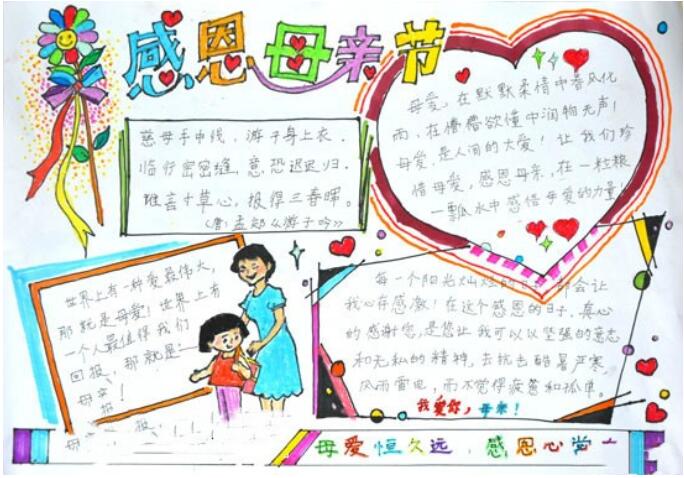 感恩母亲节
慈母手中线，游子身上衣．
临行密密缝，意恐迟迟归．
谁言寸草心，报得三春晖。
(唐)孟郊《游子吟》
母爱，在默默柔情中春风化
雨，在懵懵欲懂中润物无声！
母爱，是人间的大爱！让我们珍
惜母爱，感恩母亲，在一粒粮
一瓢水中感悟母爱的力量！
世界上有一种爱最伟大，
那就是母爱！世界上有
一个人最值得我们
回报，那就是一
母亲！
每一个阳光灿烂的日子，都会让
我心存感激！在这个感恩的日子，真心
的感谢您，是您让我可以以坚强的意志
和无私的精神，去抗击酷暑严寒
风雨雷电，而不觉得疲惫和孤单。
我爱你，母亲！
母爱恒久远，感恩心常